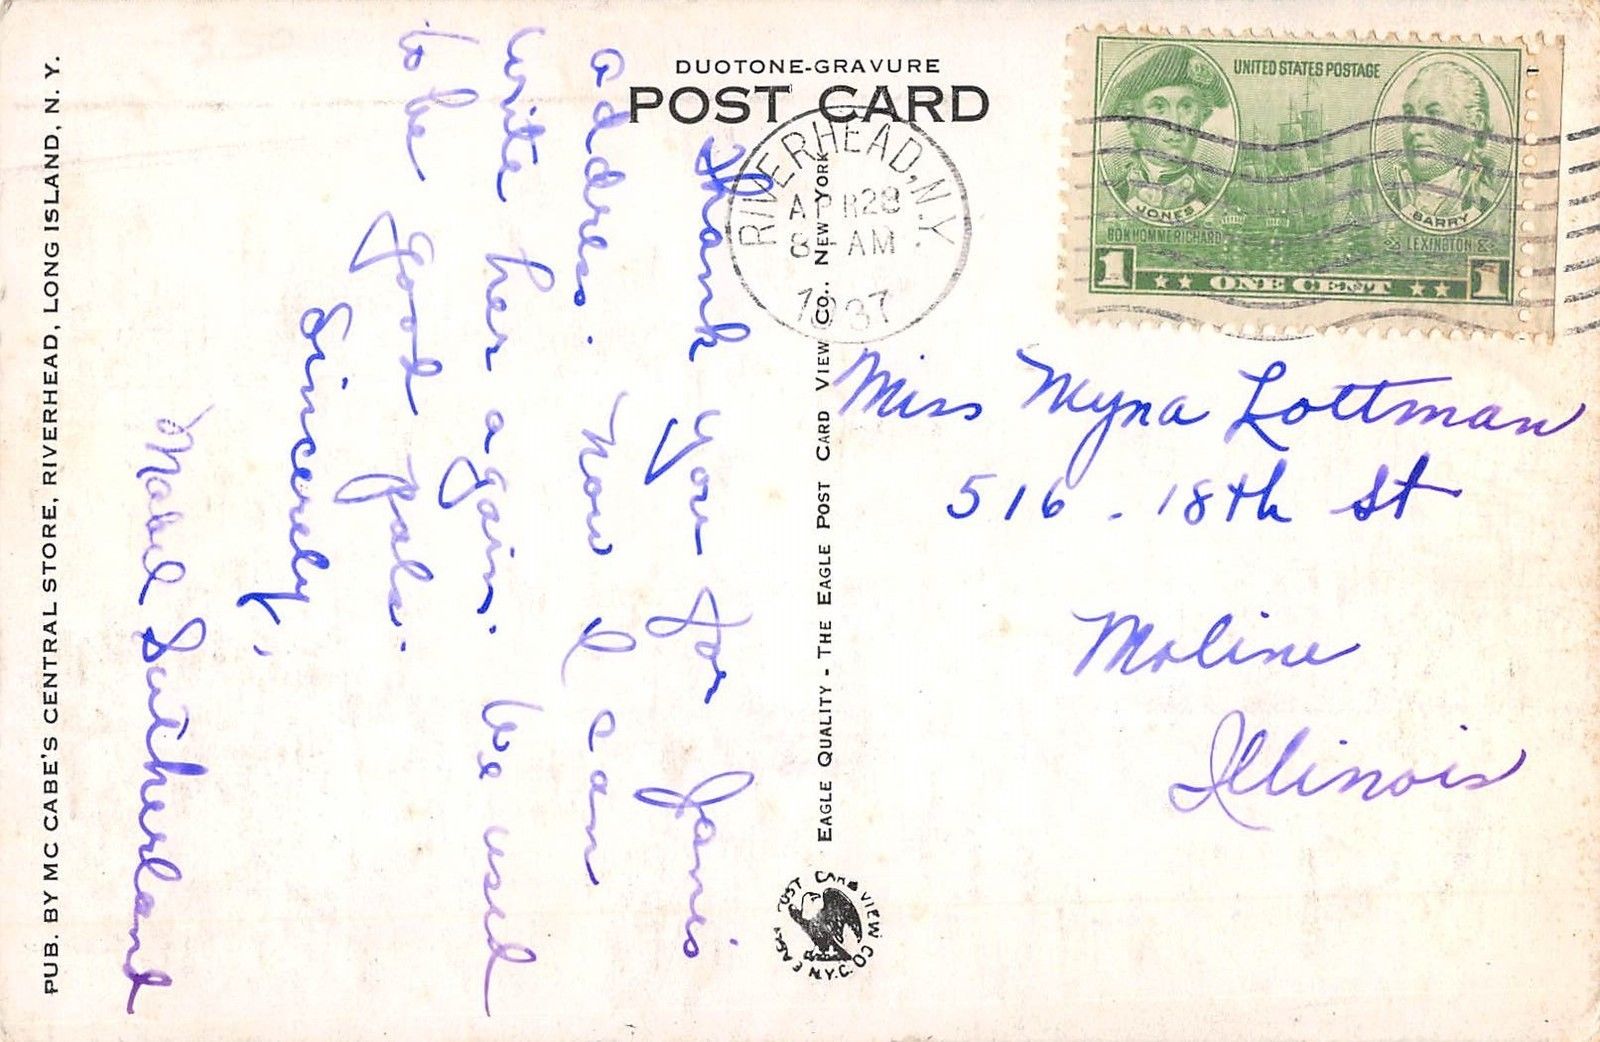 DUOTONE-GRAVURE
POST CARD
UNITED STATES POSTAGE
JONES
BARRY
BON HOMME RICHARD
LEXINGTON
1 ONE CENT 1
RIVERHEAD, N.Y.
APR 28
8 AM
1937
Thank you for Janis
address. Now I can
write her again. We used
to be good pals.
Sincerely,
Mabel Sutherland
Miss Myna Lottman
516 - 18th St
Moline
Illinois
EAGLE QUALITY - THE EAGLE POST CARD VIEW CO., NEW YORK
EAGLE POST CARD VIEW CO. N.Y.C.
PUB. BY MC CABE'S CENTRAL STORE, RIVERHEAD, LONG ISLAND, N. Y.